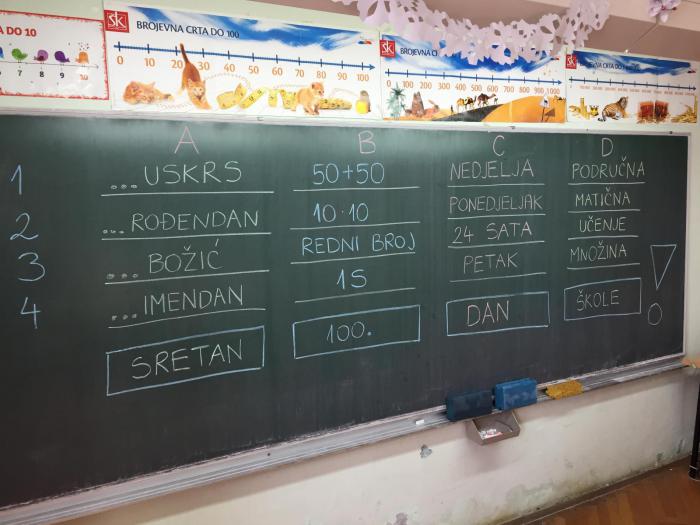 A DO 10
7 8 9 10
šk BROJEVNA CRTA DO 100
0 10 20 30 40 50 60 70 80 90 100
šk BROJEVNA
0 100 200 300 400 500 600 700 800 900 1000
šk BROJEVNA CRTA DO
A B C D
1 ...USKRS 50+50 NEDJELJA PODRUČNA
2 ...ROĐENDAN 10·10 PONEDJELJAK MATIČNA
3 ...BOŽIĆ REDNI BROJ 24 SATA UČENJE
4 ...IMENDAN 1S PETAK MNOŽINA
SRETAN 100. DAN ŠKOLE !